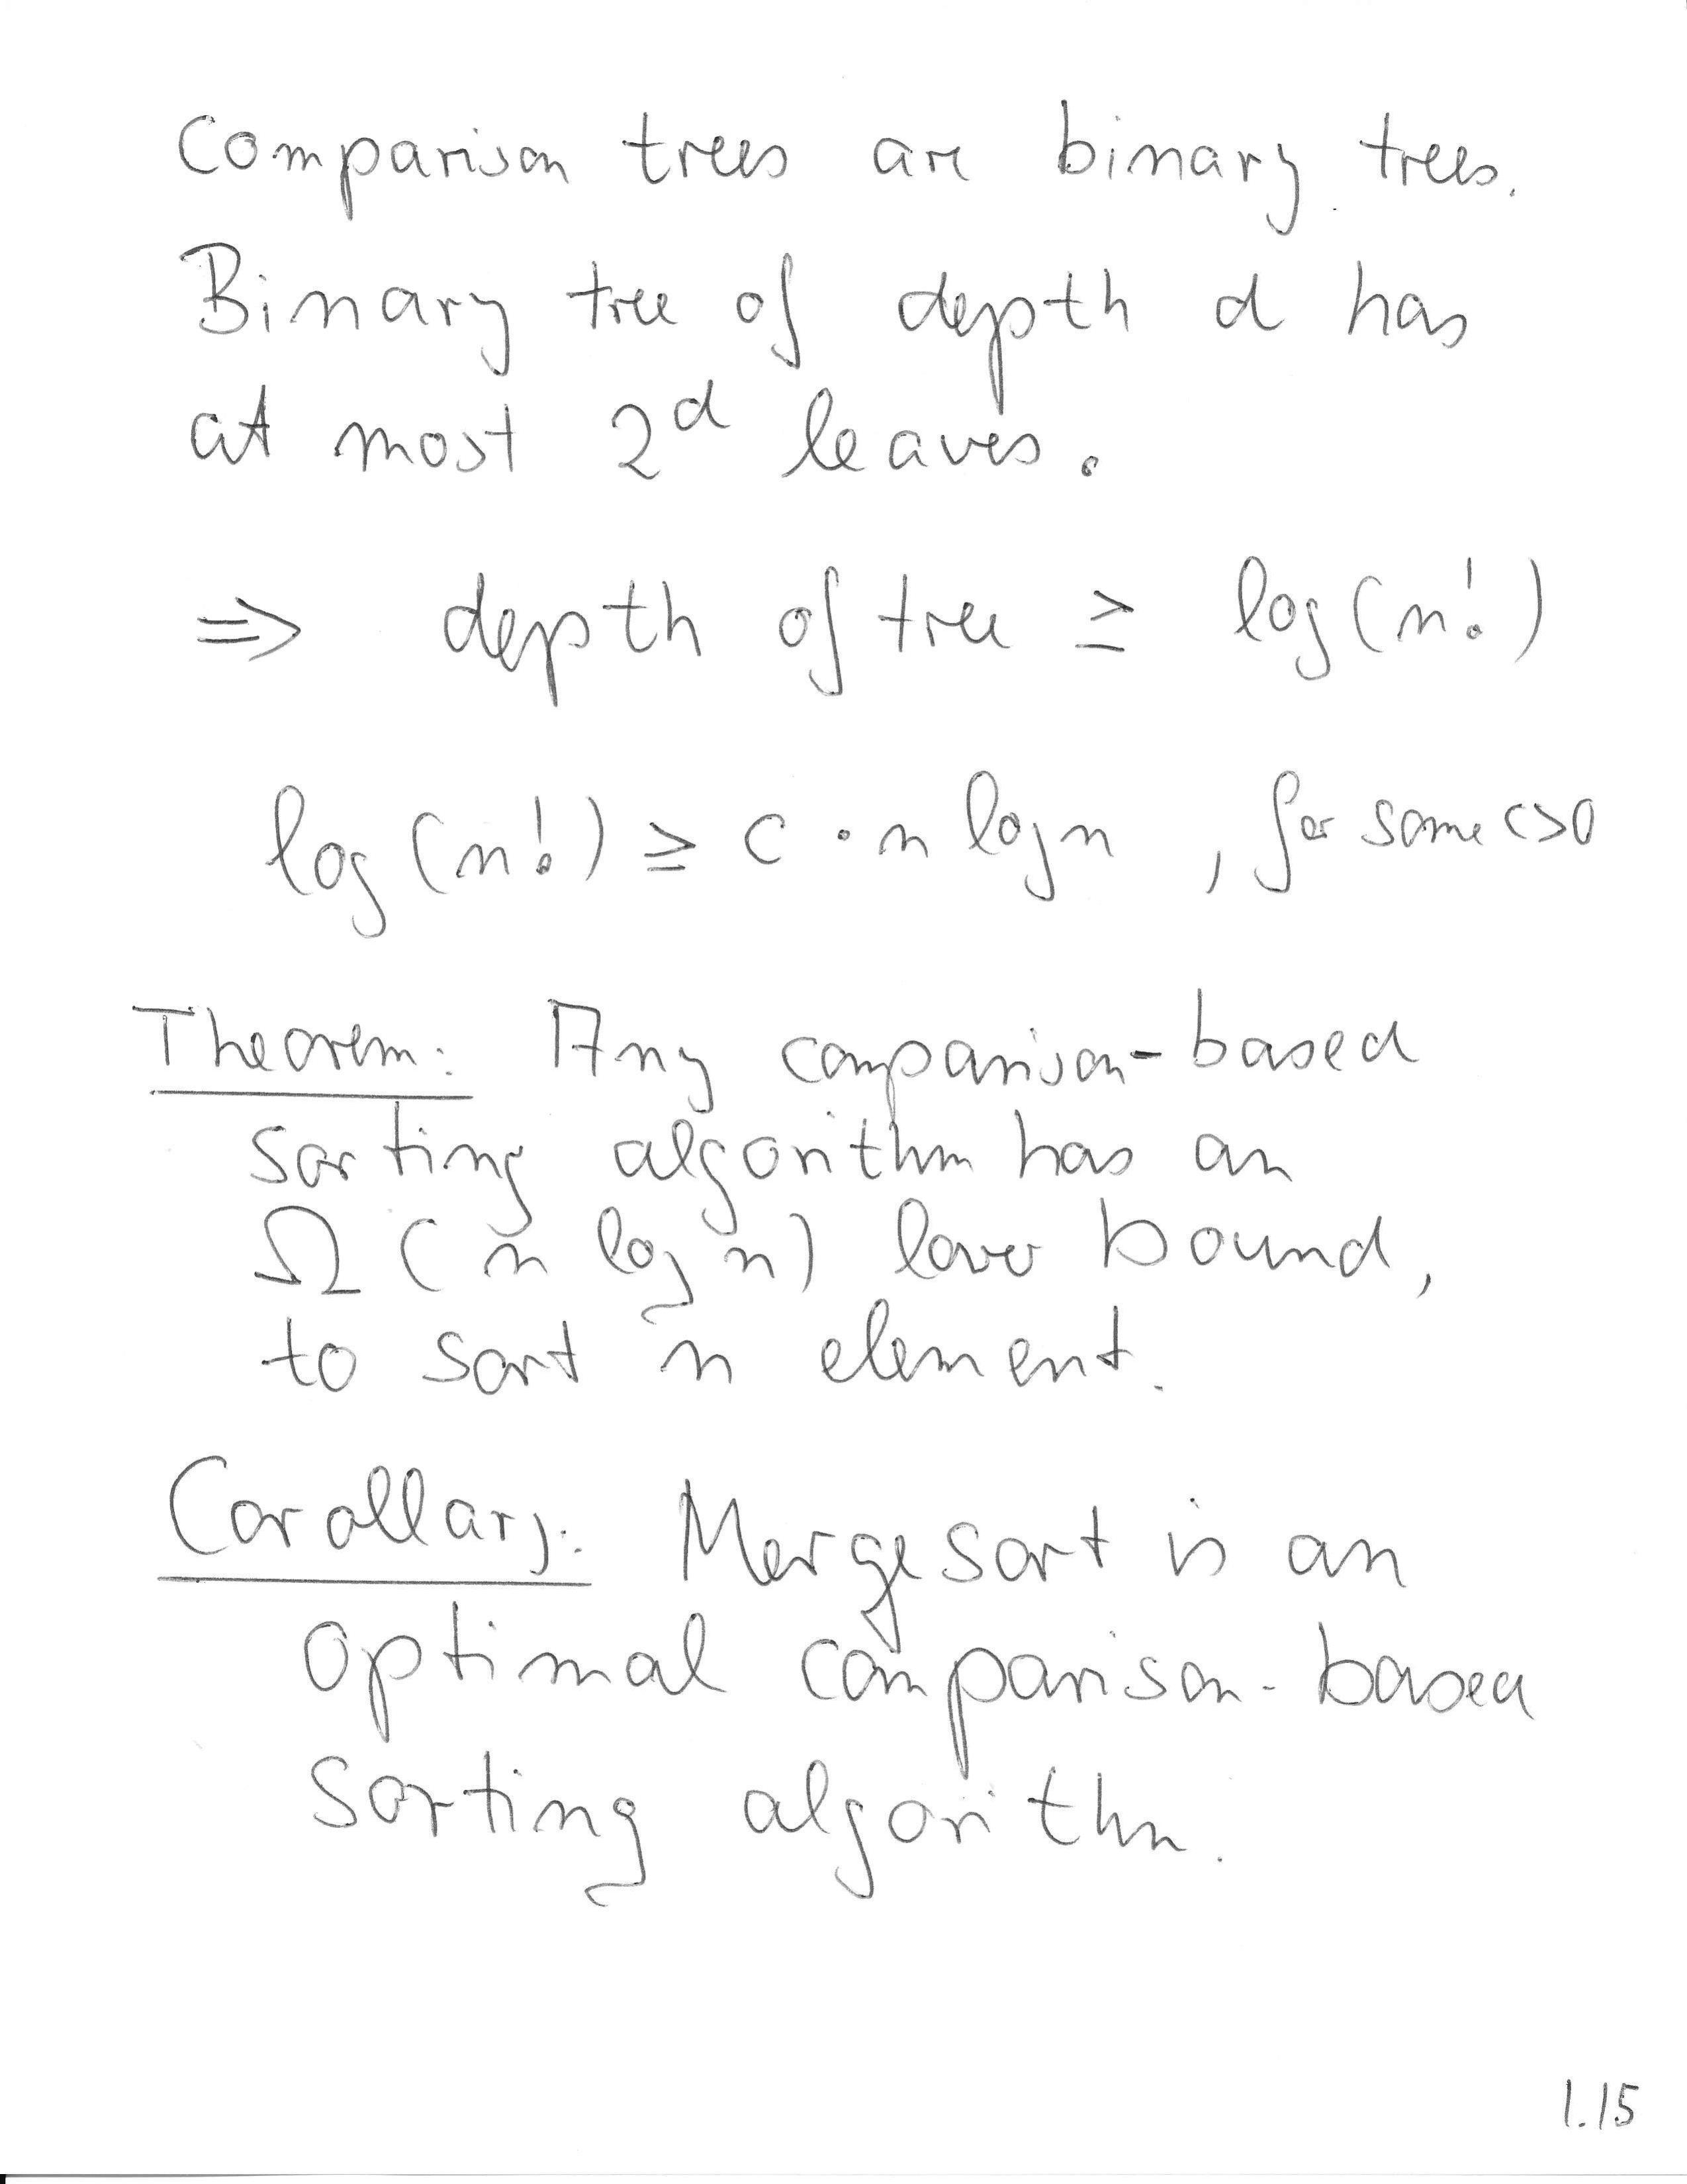 Comparison trees are binary trees.
Binary tree of depth d has
at most 2^d leaves.
=> depth of tree ≥ log(n!)
log(n!) ≥ c · n log n, for some c>0
Theorem: Any comparison-based
sorting algorithm has an
Ω(n log n) lower bound,
to sort n element.
Corollary: Mergesort is an
optimal comparison-based
sorting algorithm.
1.15